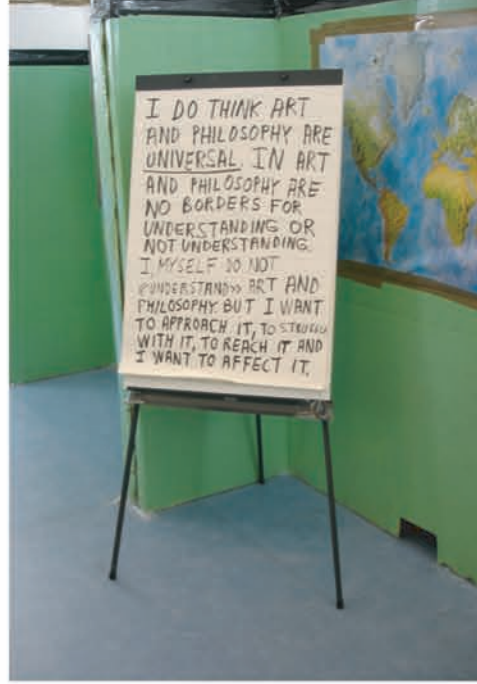 I DO THINK ART
AND PHILOSOPHY ARE
UNIVERSAL. IN ART
AND PHILOSOPHY ARE
NO BORDERS FOR
UNDERSTANDING OR
NOT UNDERSTANDING.
I, MYSELF DO NOT
«UNDERSTAND» ART AND
PHILOSOPHY. BUT I WANT
TO APPROACH IT, TO STRUGGLE
WITH IT, TO REACH IT AND
I WANT TO AFFECT IT.